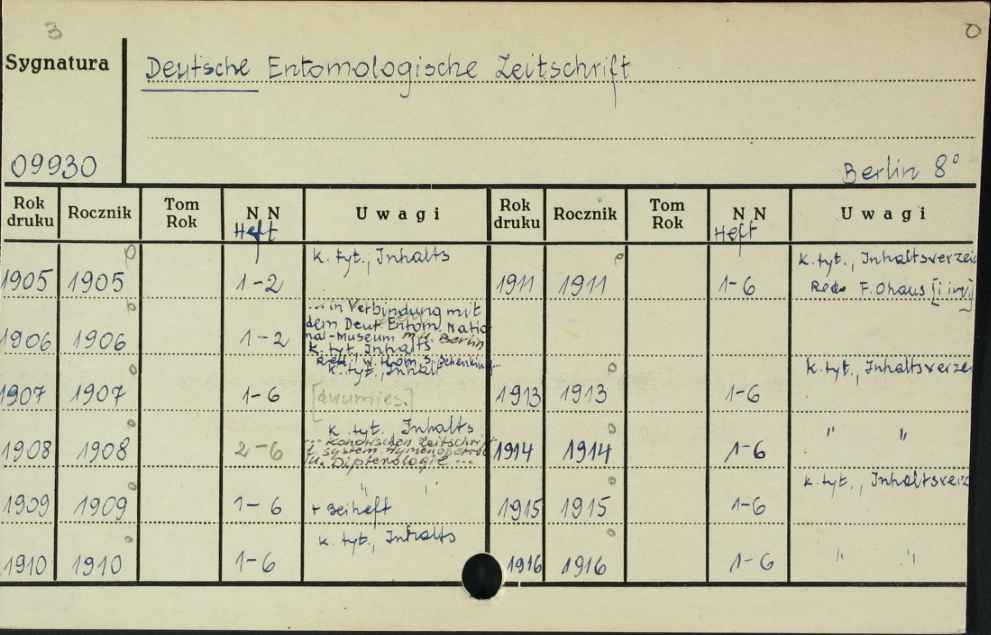 3
0
Sygnatura
Deutsche Entomologische Zeitschrift
09930
Berlin 8°
Rok druku Rocznik Tom Rok NN Heft Uwagi Rok druku Rocznik Tom Rok NN Heft Uwagi
1905 1905 1-2 k. tyt., Inhalts
1911 1911 1-6 k. tyt., Inhaltsverzei
Red. F. Ohaus [i in.]
1906 1906 1-2 ... in Verbindung mit
dem Deut. Entom. Natio
nal-Museum Berlin
k. tyt. Inhalts
1907 1907 1-6 k. tyt., Inhalt
1913 1913 1-6 k. tyt., Inhaltsverze
1908 1908 2-6 k. tyt. Inhalts
Zeitschrift
f. system. Hymenopterol
u. Dipterologie ...
1914 1914 1-6 " "
1909 1909 1-6 " "
+ Beiheft
1915 1915 1-6 k. tyt., Inhaltsverz
1910 1910 1-6 k. tyt., Inhalts
1916 1916 1-6 " "